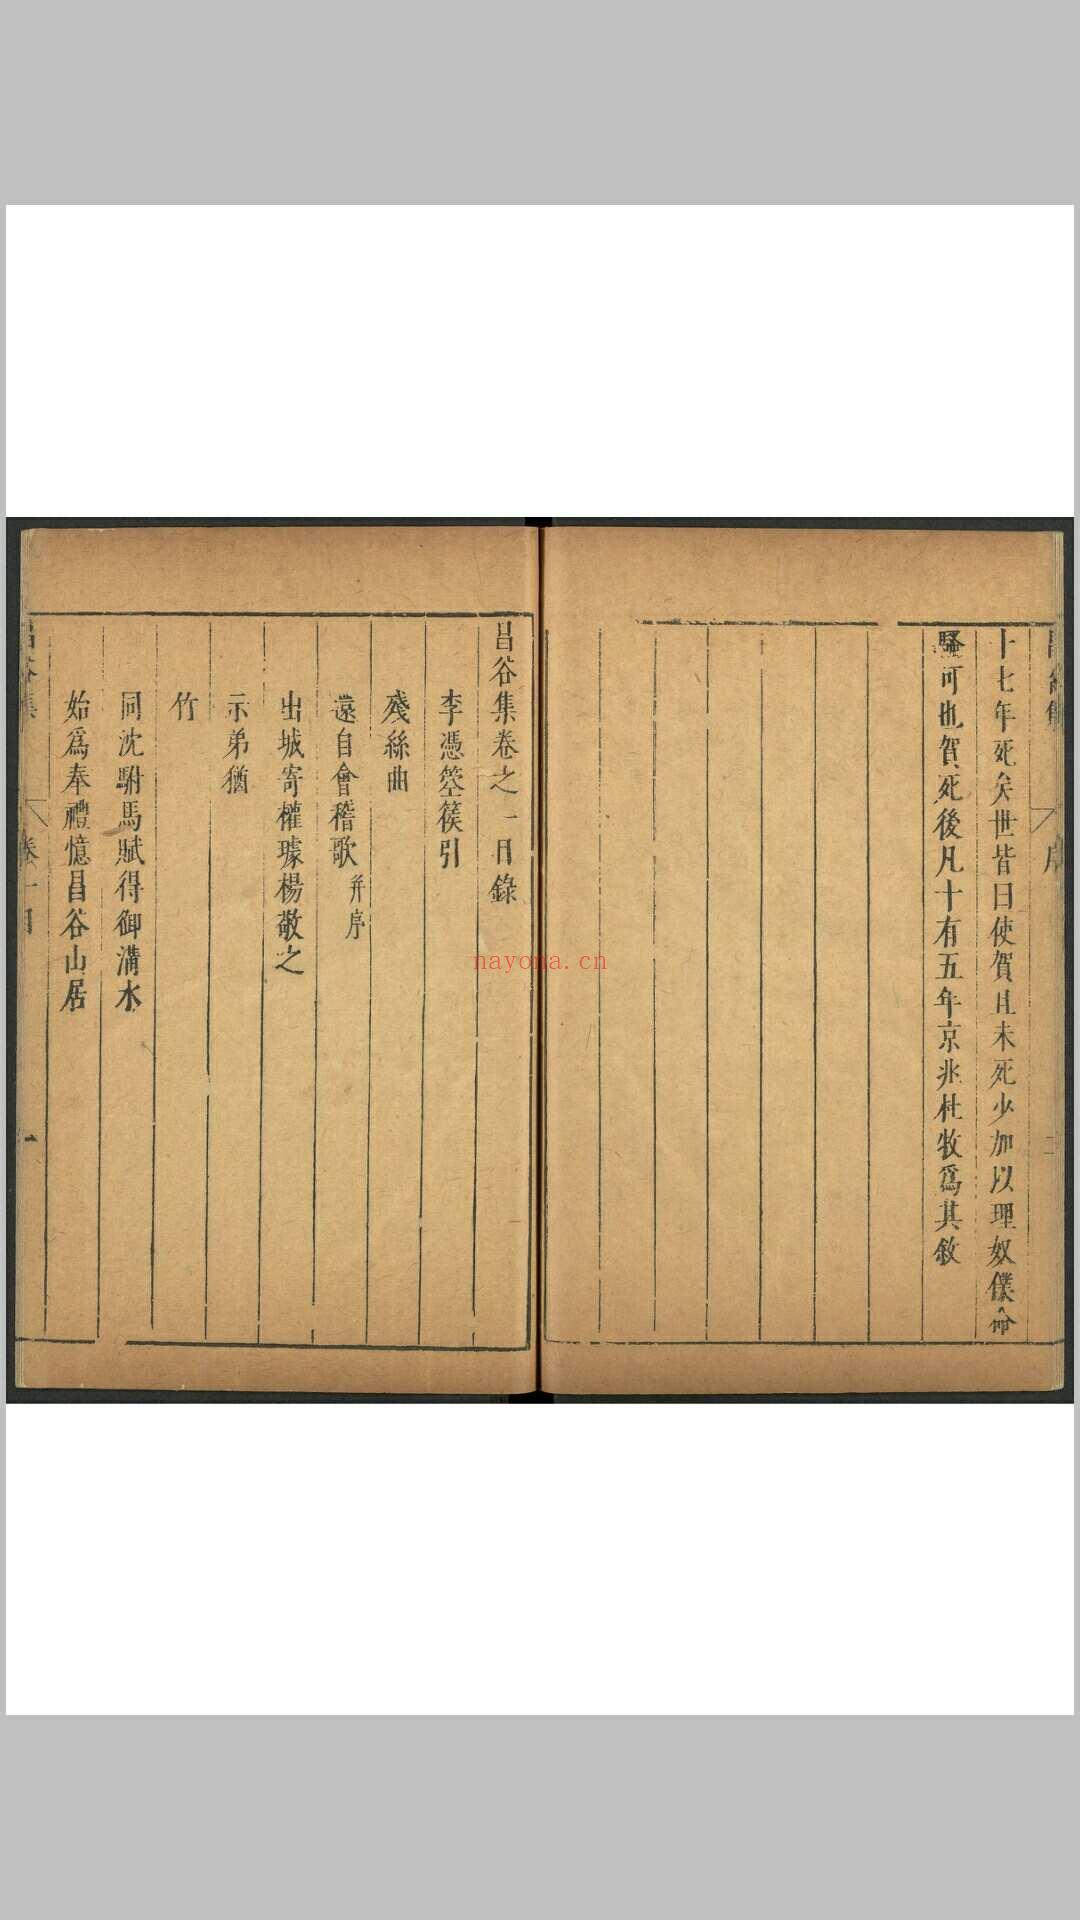 十七年死矣世皆曰使賀且未死少加以理奴僕命
騷可也賀死後凡十有五年京兆杜牧爲其敘
序
二
昌谷集卷之一目錄
李憑箜篌引
殘絲曲
還自會稽歌 并序
出城寄權璩楊敬之
示弟猶
竹
同沈駙馬賦得御溝水
始爲奉禮憶昌谷山居
昌谷集 卷一目 一
nayona.cn